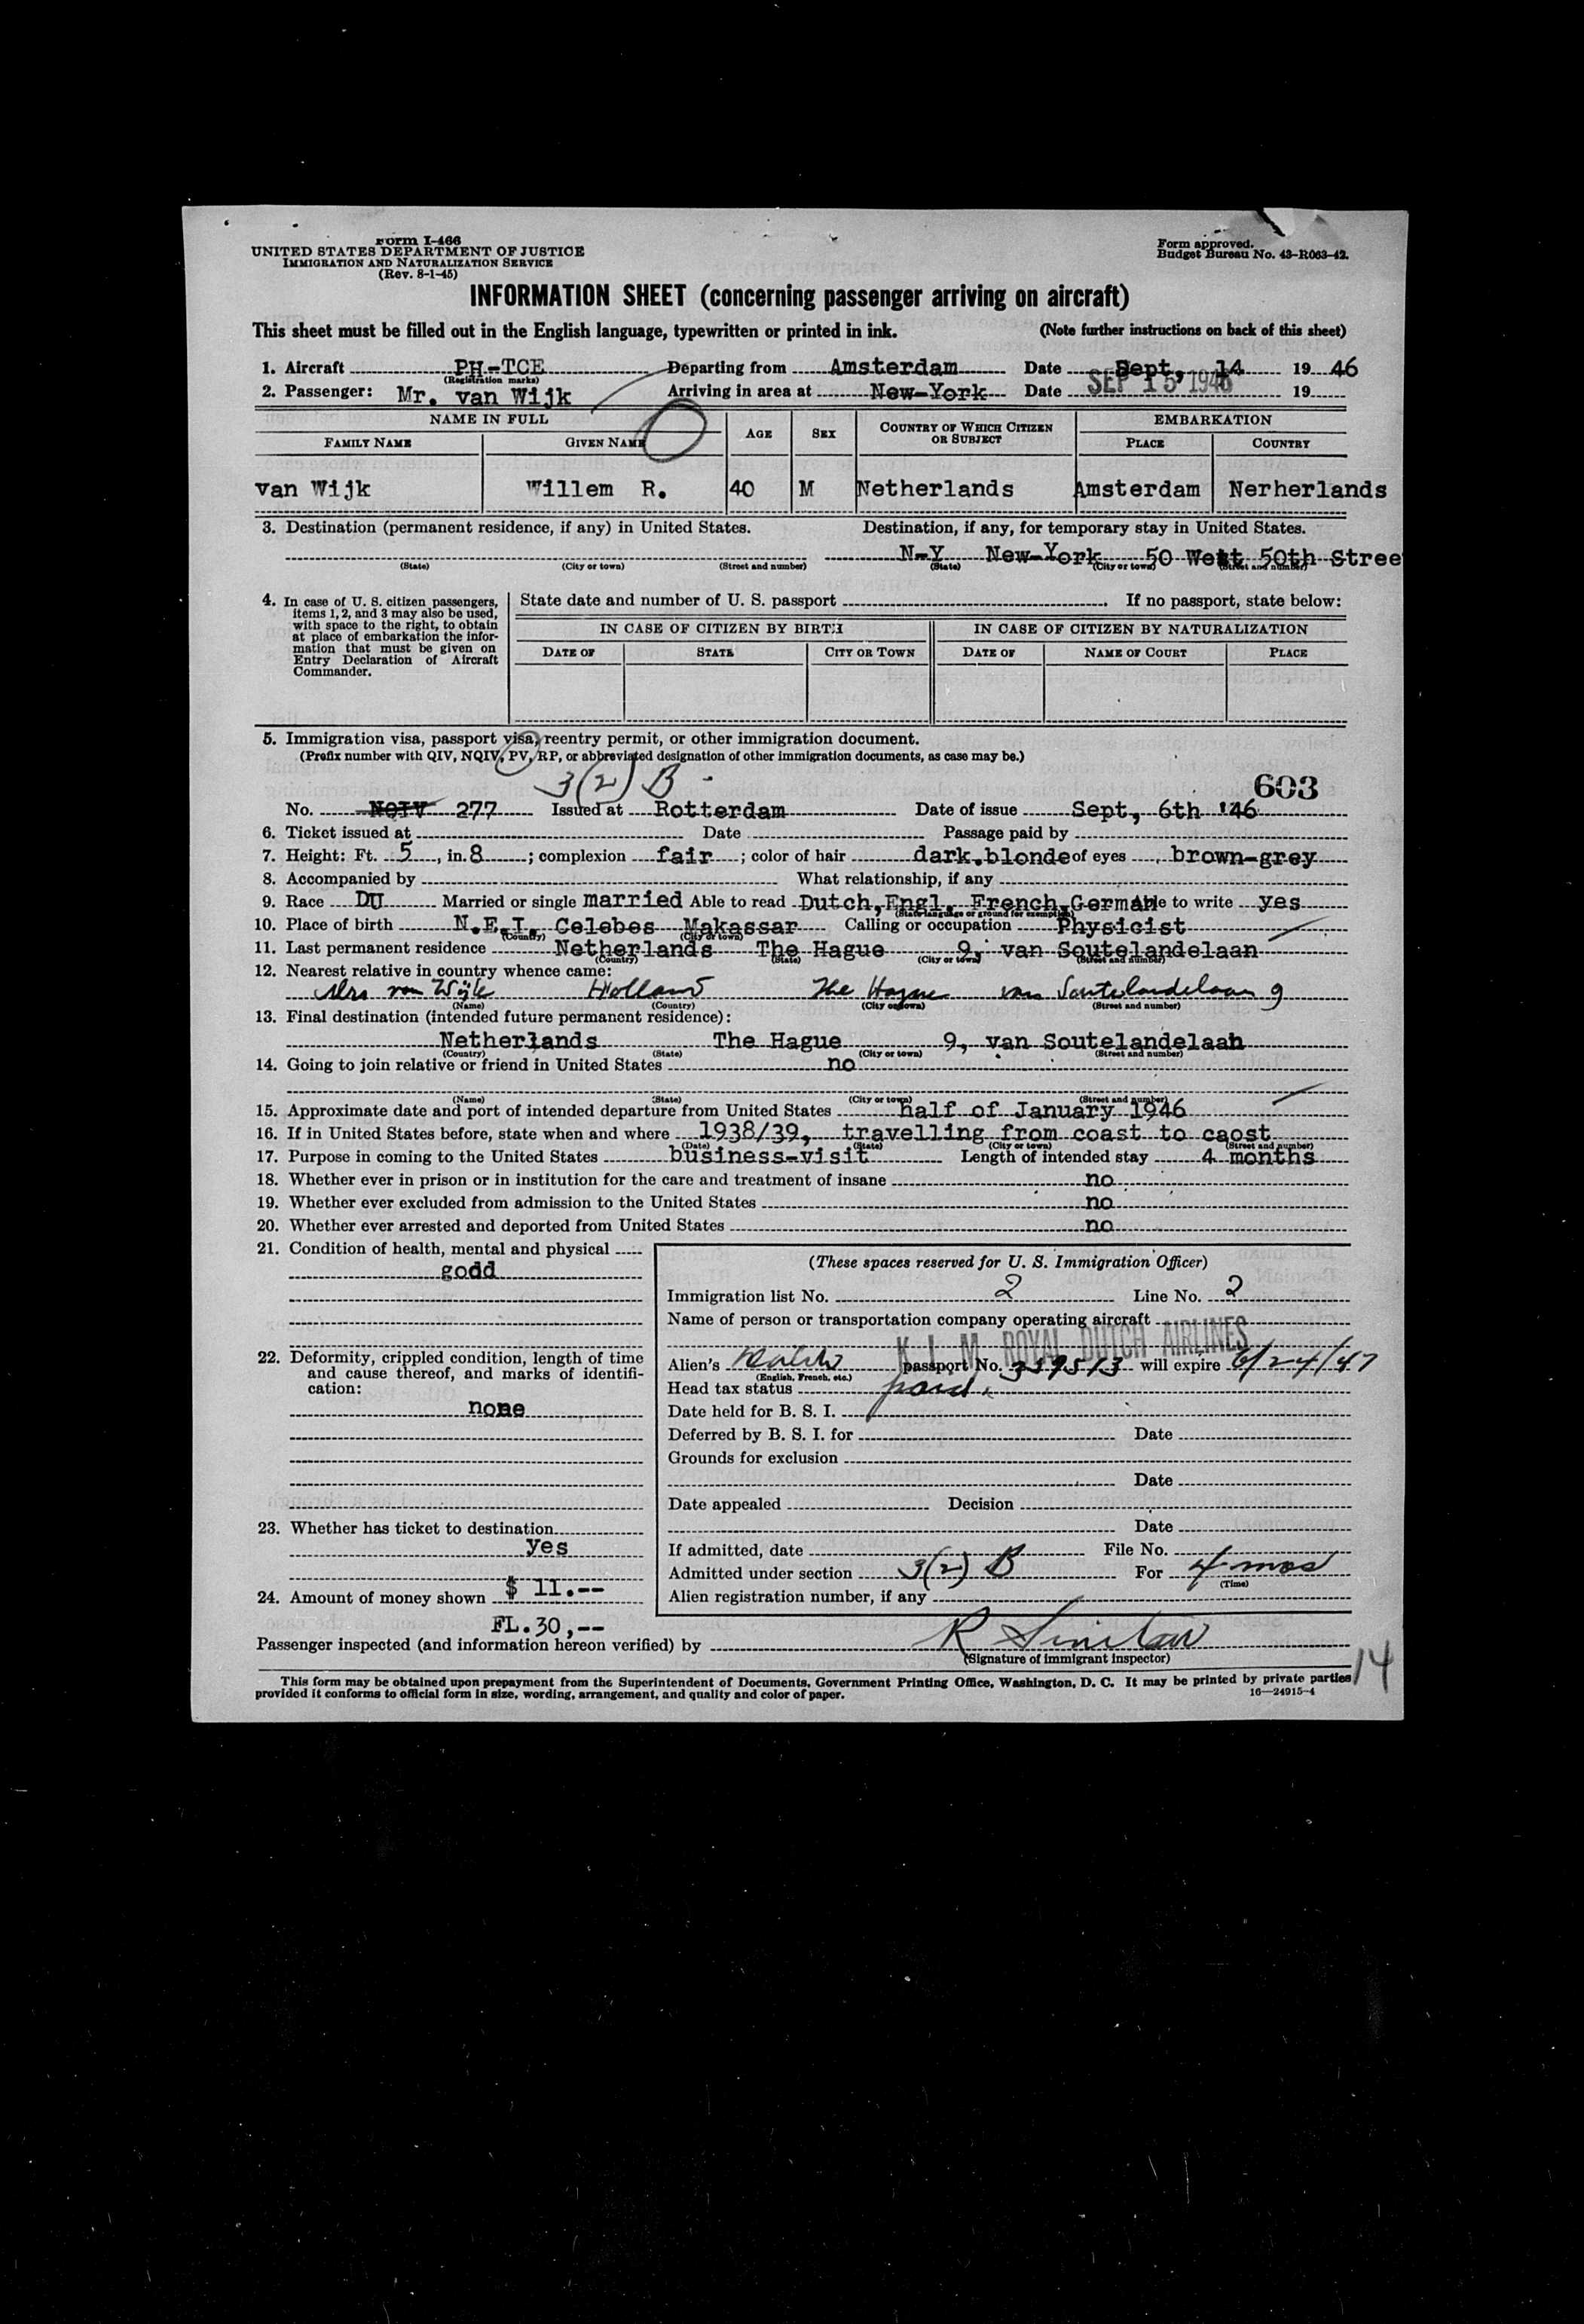 Form I-466
UNITED STATES DEPARTMENT OF JUSTICE
IMMIGRATION AND NATURALIZATION SERVICE
(Rev. 8-1-45)
Form approved.
Budget Bureau No. 43-R063-42.
INFORMATION SHEET (concerning passenger arriving on aircraft)
This sheet must be filled out in the English language, typewritten or printed in ink. (Note further instructions on back of this sheet)
1. Aircraft PH-TCE Departing from Amsterdam Date Sept, 14 19 46
(Registration marks)
2. Passenger: Mr. van Wijk Arriving in area at New-York Date SEP 15 1946 19
NAME IN FULL AGE SEX COUNTRY OF WHICH CITIZEN OR SUBJECT EMBARKATION
FAMILY NAME GIVEN NAME PLACE COUNTRY
van Wijk Willem R. 40 M Netherlands Amsterdam Nerherlands
3. Destination (permanent residence, if any) in United States. Destination, if any, for temporary stay in United States.
N-Y New-York 50 West 50th Stree
(State) (City or town) (Street and number) (State) (City or town) (Street and number)
4. In case of U. S. citizen passengers, items 1, 2, and 3 may also be used, with space to the right, to obtain at place of embarkation the information that must be given on Entry Declaration of Aircraft Commander.
State date and number of U. S. passport . If no passport, state below:
IN CASE OF CITIZEN BY BIRTH IN CASE OF CITIZEN BY NATURALIZATION
DATE OF STATE CITY OR TOWN DATE OF NAME OF COURT PLACE
5. Immigration visa, passport visa, reentry permit, or other immigration document.
(Prefix number with QIV, NQIV, PV, RP, or abbreviated designation of other immigration documents, as case may be.)
3(2) B 603
No. NQIV 277 Issued at Rotterdam Date of issue Sept, 6th '46
6. Ticket issued at Date Passage paid by
7. Height: Ft. 5, in. 8; complexion fair; color of hair dark.blonde of eyes brown-grey
8. Accompanied by What relationship, if any
9. Race DU Married or single married Able to read Dutch,Engl. French,German Able to write yes
(State language or ground for exemption)
10. Place of birth N.E.I. Celebes Makassar Calling or occupation Physicist
(Country) (City or town)
11. Last permanent residence Netherlands The Hague 9, van Soutelandelaan
(Country) (State) (City or town) (Street and number)
12. Nearest relative in country whence came:
Mrs van Wijk Holland The Hague van Soutelandelaan 9
(Name) (Country) (City or town) (Street and number)
13. Final destination (intended future permanent residence):
Netherlands The Hague 9, van Soutelandelaan
(Country) (State) (City or town) (Street and number)
14. Going to join relative or friend in United States no
(Name) (State) (City or town) (Street and number)
15. Approximate date and port of intended departure from United States half of January 1946
16. If in United States before, state when and where 1938/39, travelling from coast to caost
(Date) (State) (City or town) (Street and number)
17. Purpose in coming to the United States business-visit Length of intended stay 4 months
18. Whether ever in prison or in institution for the care and treatment of insane no
19. Whether ever excluded from admission to the United States no
20. Whether ever arrested and deported from United States no
21. Condition of health, mental and physical
godd
22. Deformity, crippled condition, length of time and cause thereof, and marks of identification:
none
23. Whether has ticket to destination
yes
24. Amount of money shown $ 11.--
FL.30,--
(These spaces reserved for U. S. Immigration Officer)
Immigration list No. 2 Line No. 2
Name of person or transportation company operating aircraft
K L M ROYAL DUTCH AIRLINES
Alien's passport No. 359513 will expire 6/24/47
(English, French, etc.)
Head tax status paid.
Date held for B. S. I.
Deferred by B. S. I. for Date
Grounds for exclusion
Date
Date appealed Decision
Date
If admitted, date File No.
Admitted under section 3(2) B For 4 mos
(Time)
Alien registration number, if any
Passenger inspected (and information hereon verified) by R Sinclair
(Signature of immigrant inspector)
14
This form may be obtained upon prepayment from the Superintendent of Documents, Government Printing Office, Washington, D. C. It may be printed by private parties
provided it conforms to official form in size, wording, arrangement, and quality and color of paper. 16—24915-4